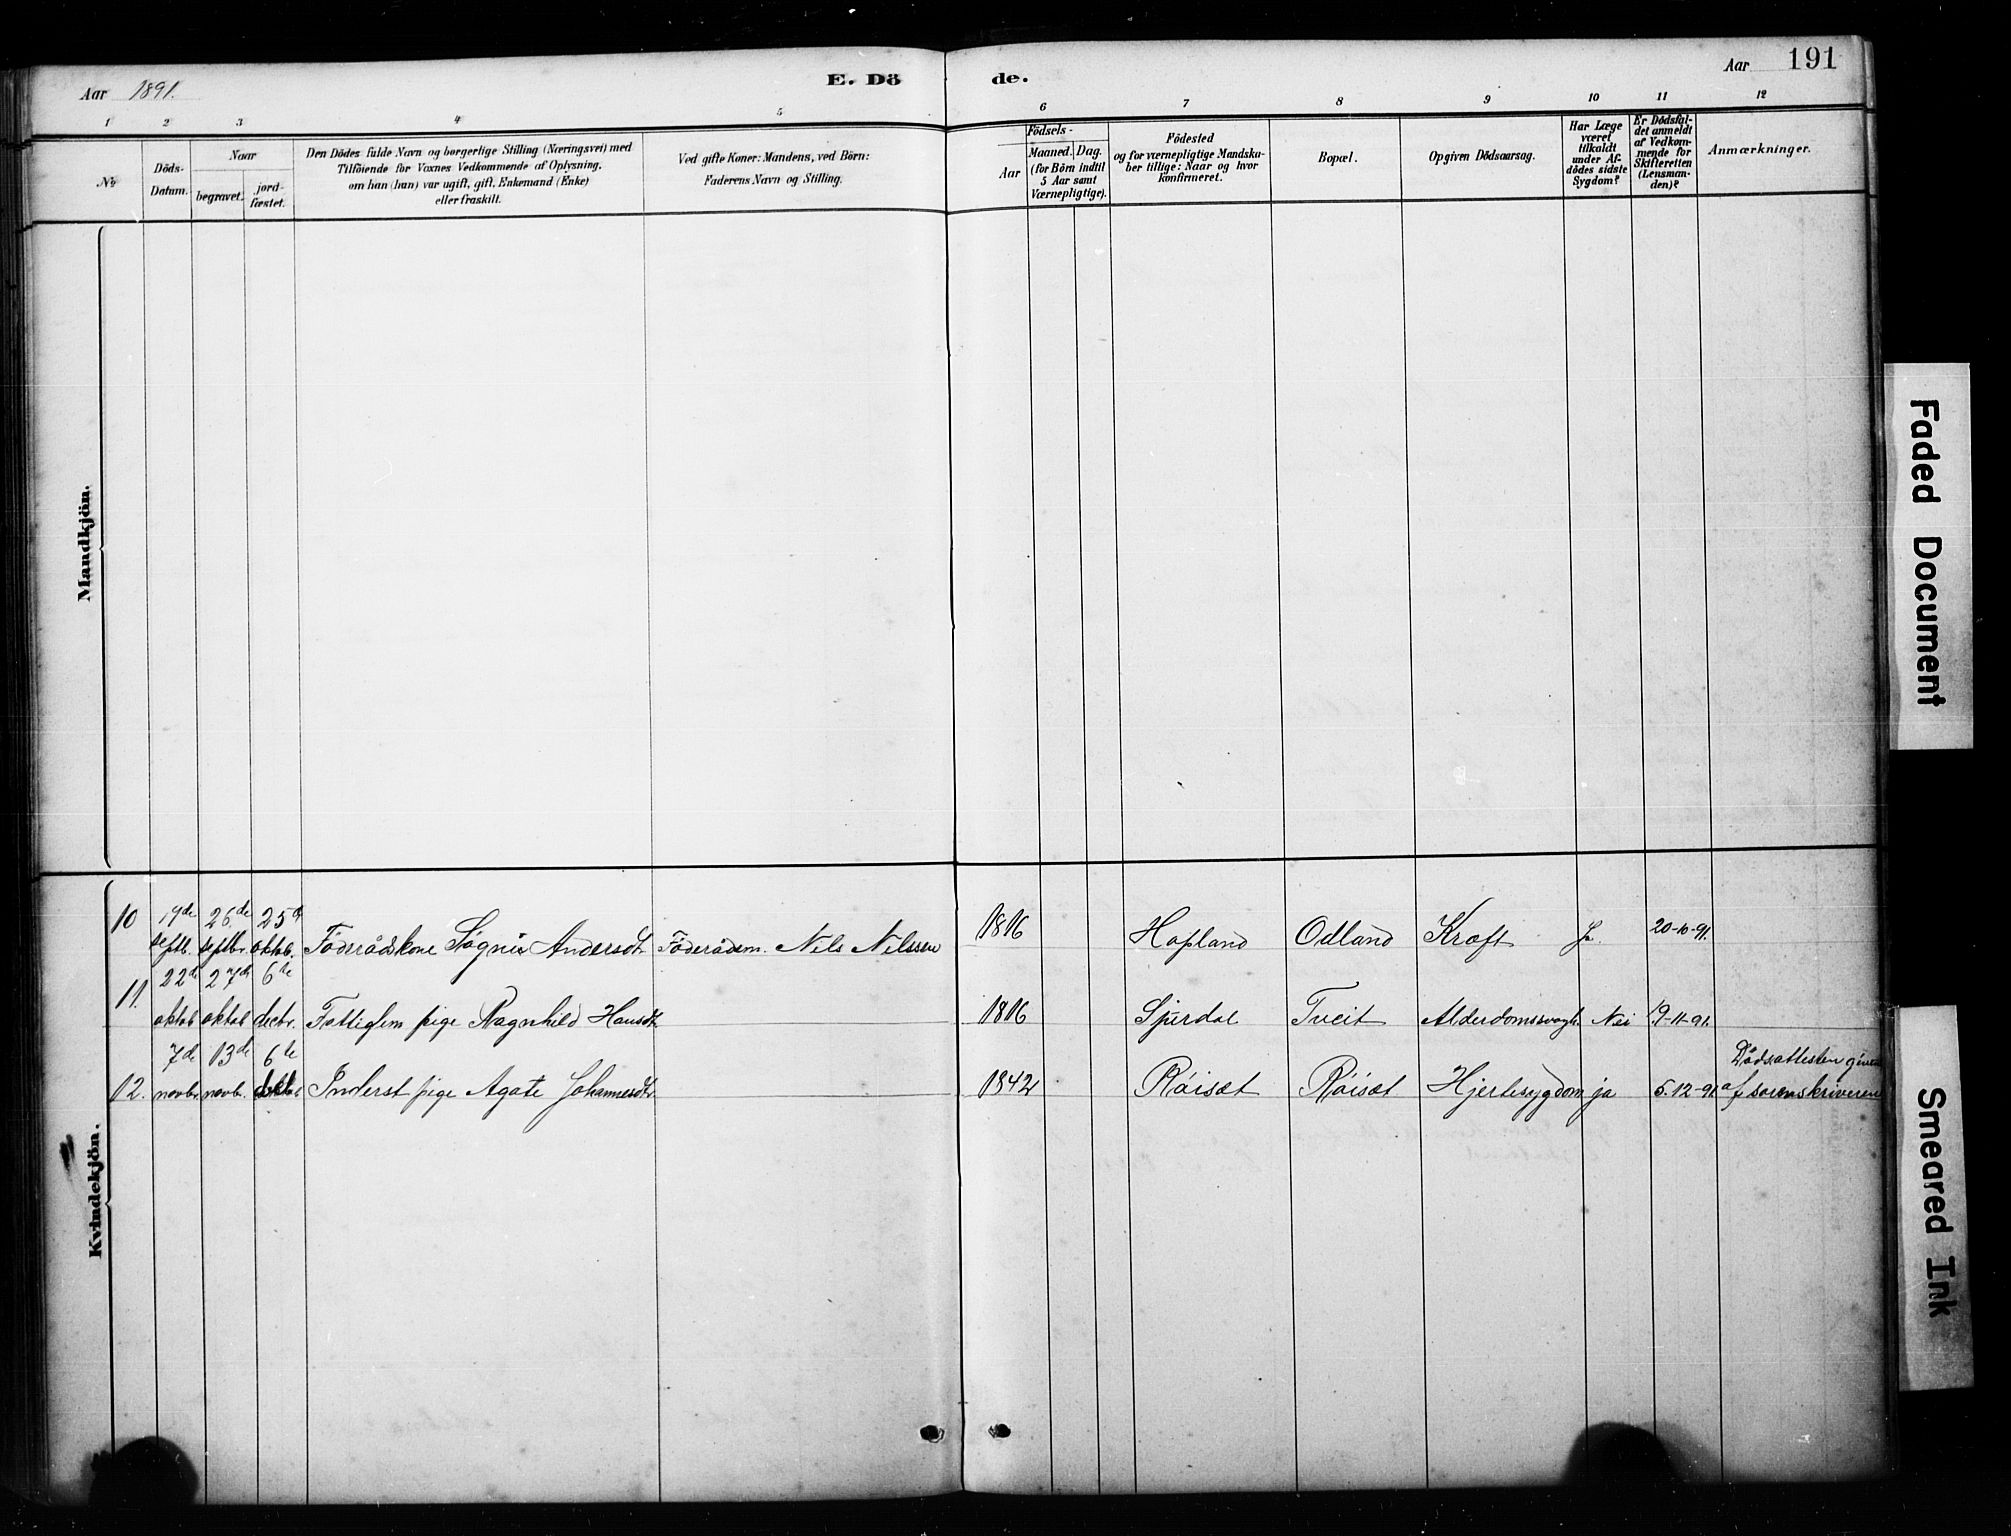 Aar 1891.
E. Dö de.
Aar 191
1 2 3 4 5 6 7 8 9 10 11 12
No
Döds-
Datum.
Naar
begravet.
jord-
fæstet.
Den Dödes fulde Navn og borgerlige Stilling (Næringsvei) med
Tilföiende for Voxnes Vedkommende af Oplysning,
om han (hun) var ugift, gift, Enkemand (Enke)
eller fraskilt.
Ved gifte Koner: Mandens, ved Börn:
Faderens Navn og Stilling.
Födsels-
Aar
Maaned. Dag.
(for Börn indtil
5 Aar samt
Værnepligtige).
Födested
og for værnepligtige Mandska-
ber tillige: Naar og hvor
konfirmeret.
Bopæl.
Opgiven Dödsaarsag.
Har Læge
været
tilkaldt
under Af-
dödes sidste
Sygdom?
Er Dödsfal-
det anmeldt
af Vedkom-
mende for
Skifteretten
(Lensman-
den)?
Anmærkninger.
Mandkjön.
Kvindekjön.
10 19de 26de 25de
septb. septbr. oktob. Föderådskone Søgni Andersdt. Föderådsm. Nils Nilssen 1816 Hopland Odland Kræft Ja. 20-10-91.
11. 22de 27de 6te
oktob oktob decbr. Fattiglem pige Ragnhild Hansdt. 1816 Sperdal Tveit Alderdomssvagh. Nei 19-11-91.
7de 13de 6te
12. novbr. novbr. Inderst pige Agate Johannesdt. 1842 Röisæt Röisæt Hjertesygdom ja 5-12-91. Dödsattesten given
af sorenskriveren
Faded Document
Smeared Ink